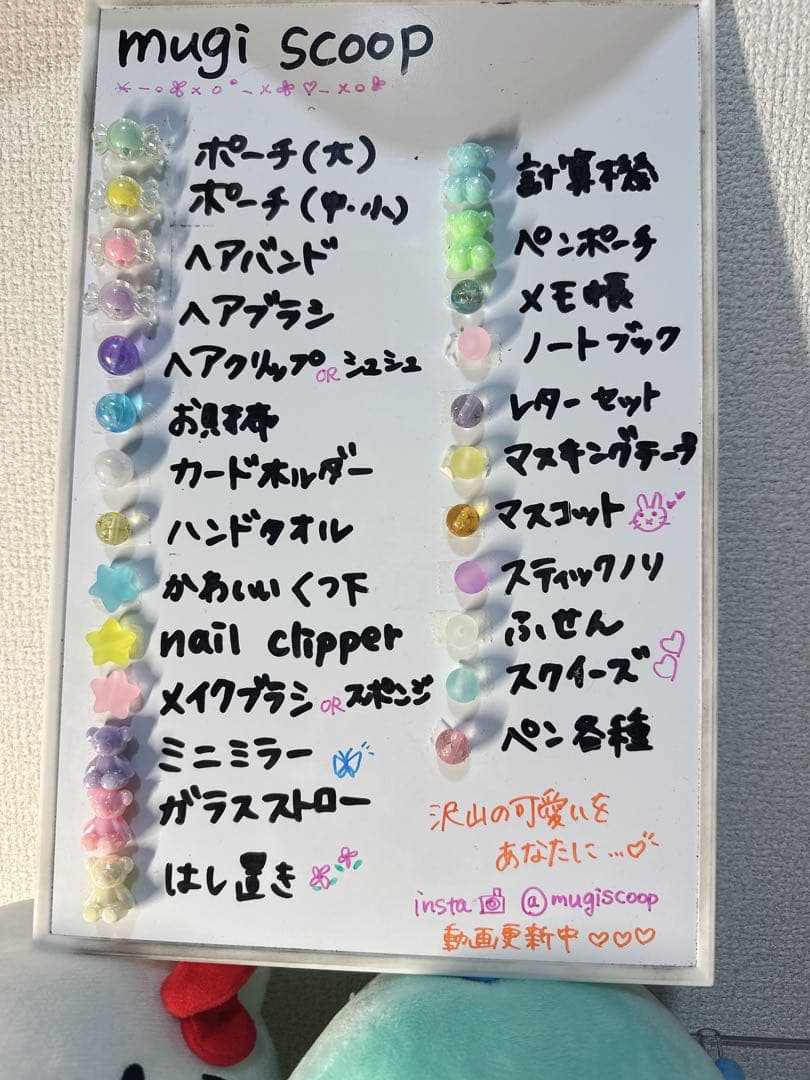 mugi scoop
ポーチ(大)
ポーチ(中・小)
ヘアバンド
ヘアブラシ
ヘアクリップ OR シュシュ
お財布
カードホルダー
ハンドタオル
かわいいくつ下
nail clipper
メイクブラシ OR スポンジ
ミニミラー
ガラスストロー
はし置き
計算機
ペンポーチ
メモ帳
ノートブック
レターセット
マスキングテープ
マスコット
スティックノリ
ふせん
スクイーズ
ペン各種
沢山の可愛いを
あなたに...
insta @mugiscoop
動画更新中